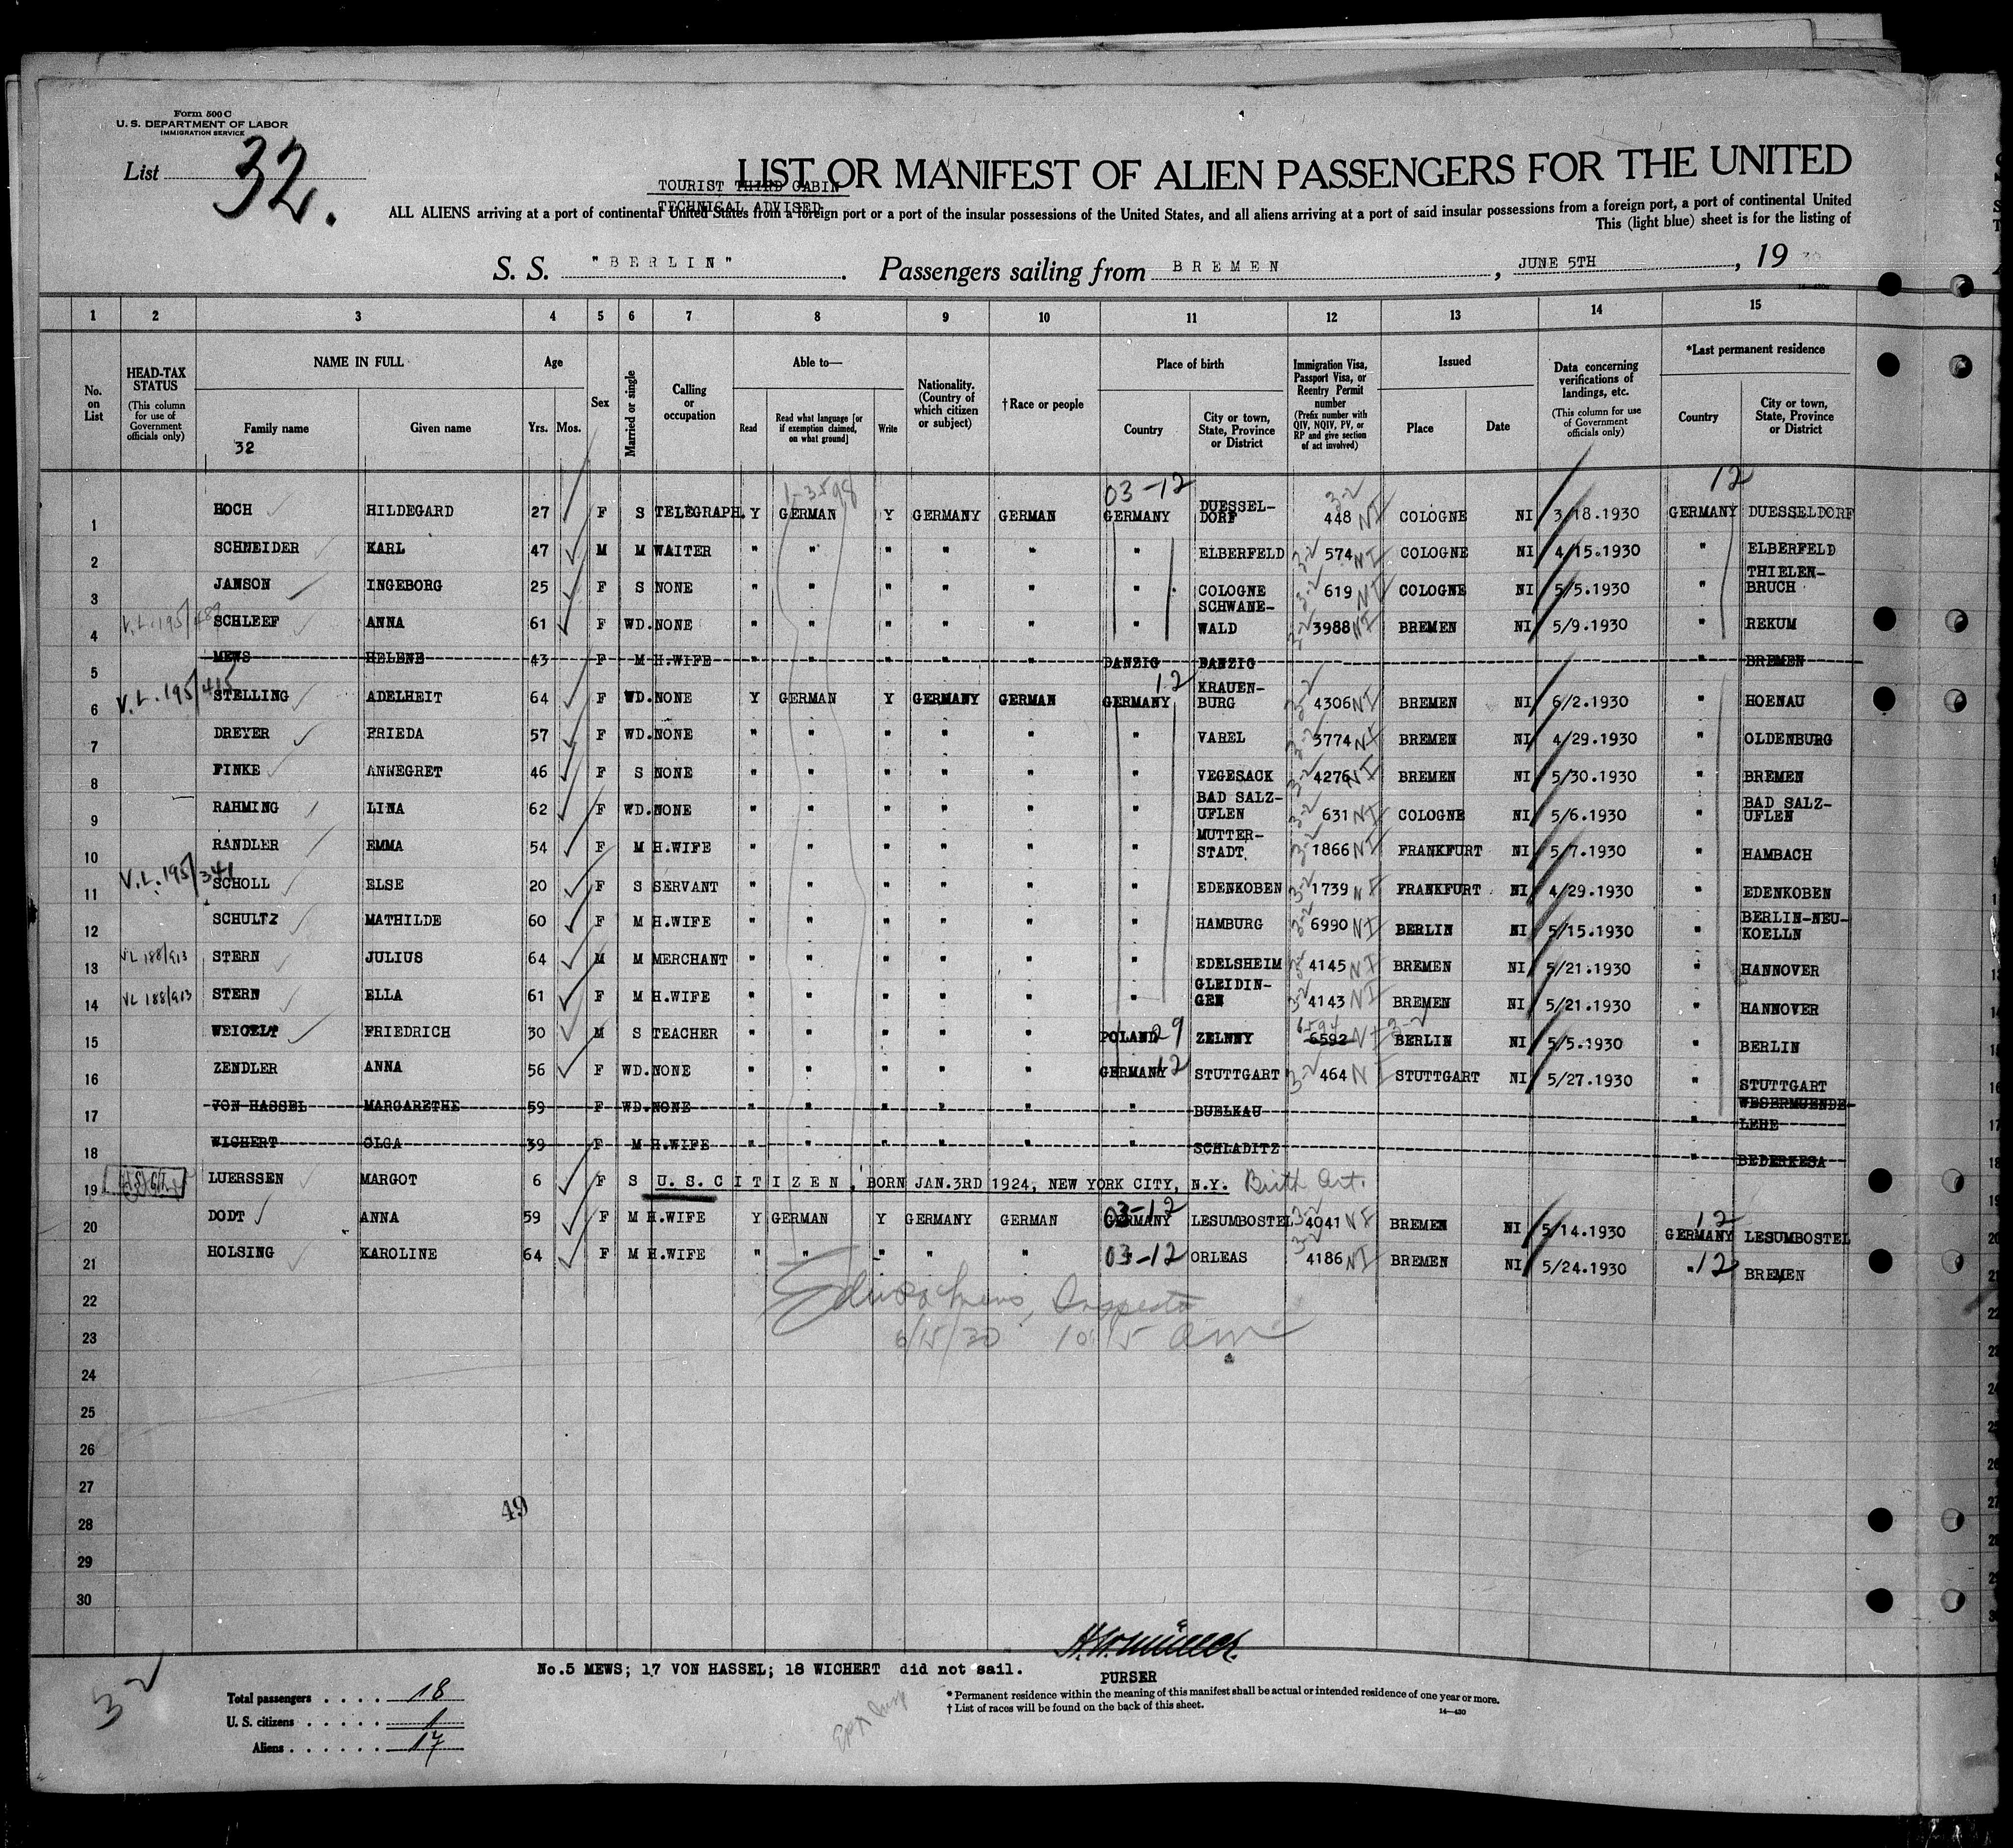 Form 500 C
U. S. DEPARTMENT OF LABOR
IMMIGRATION SERVICE
List 32.
LIST OR MANIFEST OF ALIEN PASSENGERS FOR THE UNITED
TOURIST THIRD CABIN
TECHNICAL ADVISED
ALL ALIENS arriving at a port of continental United States from a foreign port or a port of the insular possessions of the United States, and all aliens arriving at a port of said insular possessions from a foreign port, a port of continental United
This (light blue) sheet is for the listing of
S. S. "BERLIN". Passengers sailing from BREMEN, JUNE 5TH, 19 30
1 2 3 4 5 6 7 8 9 10 11 12 13 14 15
No. on List
HEAD-TAX STATUS (This column for use of Government officials only)
NAME IN FULL Family name Given name
32
Age Yrs. Mos.
Sex
Married or single
Calling or occupation
Able to— Read Read what language [or if exemption claimed, on what ground] Write
Nationality. (Country of which citizen or subject)
†Race or people
Place of birth Country City or town, State, Province or District
Immigration Visa, Passport Visa, or Reentry Permit number (Prefix number with QIV, NQIV, PV, or RP and give section of act involved)
Issued Place Date
Data concerning verifications of landings, etc. (This column for use of Government officials only)
*Last permanent residence Country City or town, State, Province or District
1-3598 03-12 3-2 12
1 HOCH HILDEGARD 27 F S TELEGRAPH. Y GERMAN Y GERMANY GERMAN GERMANY DUESSEL-DORF 448 NI COLOGNE NI 3/18.1930 GERMANY DUESSELDORF
2 SCHNEIDER KARL 47 M M WAITER " " " " " " ELBERFELD 3-2 574 NI COLOGNE NI 4/15.1930 " ELBERFELD
3 JANSON INGEBORG 25 F S NONE " " " " " " COLOGNE 3-2 619 NI COLOGNE NI 5/5.1930 " THIELEN-BRUCH
4 SCHLEEF ANNA 61 F WD. NONE " " " " " " SCHWANE-WALD 3-2 3988 NI BREMEN NI 5/9.1930 " REKUM
5 MEWS HELENE 43 F M H.WIFE " " " " " DANZIG DANZIG " BREMEN
6 V.L. 195/415 STELLING ADELHEIT 64 F WD. NONE Y GERMAN Y GERMANY GERMAN GERMANY 12 KRAUEN-BURG 3-2 4306 NI BREMEN NI 6/2.1930 " HOENAU
7 DREYER FRIEDA 57 F WD. NONE " " " " " " VAREL 3-2 3774 NI BREMEN NI 4/29.1930 " OLDENBURG
8 FINKE ANNEGRET 46 F S NONE " " " " " " VEGESACK 3-2 4276 NI BREMEN NI 5/30.1930 " BREMEN
9 RAHMING LINA 62 F WD. NONE " " " " " " BAD SALZ-UFLEN 3-2 631 NI COLOGNE NI 5/6.1930 " BAD SALZ-UFLEN
10 RANDLER EMMA 54 F M H.WIFE " " " " " " MUTTER-STADT. 3-2 1866 NI FRANKFURT NI 5/7.1930 " HAMBACH
11 V.L. 195/341 SCHOLL ELSE 20 F S SERVANT " " " " " " EDENKOBEN 3-2 1739 NI FRANKFURT NI 4/29.1930 " EDENKOBEN
12 SCHULTZ MATHILDE 60 F M H.WIFE " " " " " " HAMBURG 3-2 6990 NI BERLIN NI 5/15.1930 " BERLIN-NEU-KOELLN
13 VL 188/913 STERN JULIUS 64 M M MERCHANT " " " " " " EDELSHEIM 3-2 4145 NI BREMEN NI 5/21.1930 " HANNOVER
14 VL 188/913 STERN ELLA 61 F M H.WIFE " " " " " " GLEIDIN-GEN 3-2 4143 NI BREMEN NI 5/21.1930 " HANNOVER
15 WEIGELT FRIEDRICH 30 M S TEACHER " " " " " POLAND 29 ZELNNY 6594 6592 NI 3-2 BERLIN NI 5/5.1930 " BERLIN
16 ZENDLER ANNA 56 F WD. NONE " " " " " GERMANY 12 STUTTGART 3-2 464 NI STUTTGART NI 5/27.1930 " STUTTGART
17 VON HASSEL MARGARETHE 59 F WD. NONE " " " " " " BUELKAU " WESERMUENDE-LEHE
18 WICHERT OLGA 39 F M H.WIFE " " " " " " SCHLADITZ " BEDERKESA
19 LUERSSEN MARGOT 6 F S U.S. CITIZEN, BORN JAN.3RD 1924, NEW YORK CITY, N.Y. Birth Cert.
20 DODT ANNA 59 F M H.WIFE Y GERMAN Y GERMANY GERMAN GERMANY 03-12 LESUMBOSTEL 3-2 4041 NI BREMEN NI 5/14.1930 12 GERMANY LESUMBOSTEL
21 HOLSING KAROLINE 64 F M H.WIFE " " " " " 03-12 ORLEAS 3-2 4186 NI BREMEN NI 5/24.1930 " 12 BREMEN
22
Inspector
23 6/15/30 10:15 am
24
25
26
27
49
28
29
30
PURSER
No.5 MEWS; 17 VON HASSEL; 18 WICHERT did not sail.
32
Total passengers . . . . 18
U. S. citizens . . . . . 1
Aliens . . . . . . 17
* Permanent residence within the meaning of this manifest shall be actual or intended residence of one year or more.
† List of races will be found on the back of this sheet.
14—430